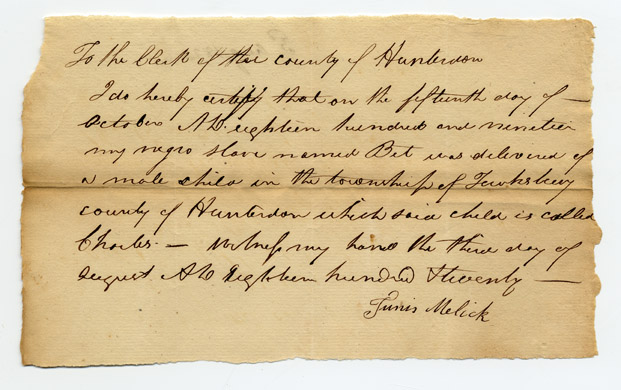 To the Clerk of the county of Hunterdon
I do hereby certify that on the fifteenth day of —
October AD. eighteen hundred and nineteen
my negro slave named Bet was delivered of
a male child in the township of Tewksbury
county of Hunterdon which said child is called
Charles. — Witness my hand the third day of
August AD Eighteen hundred & twenty —
Tunis Melick